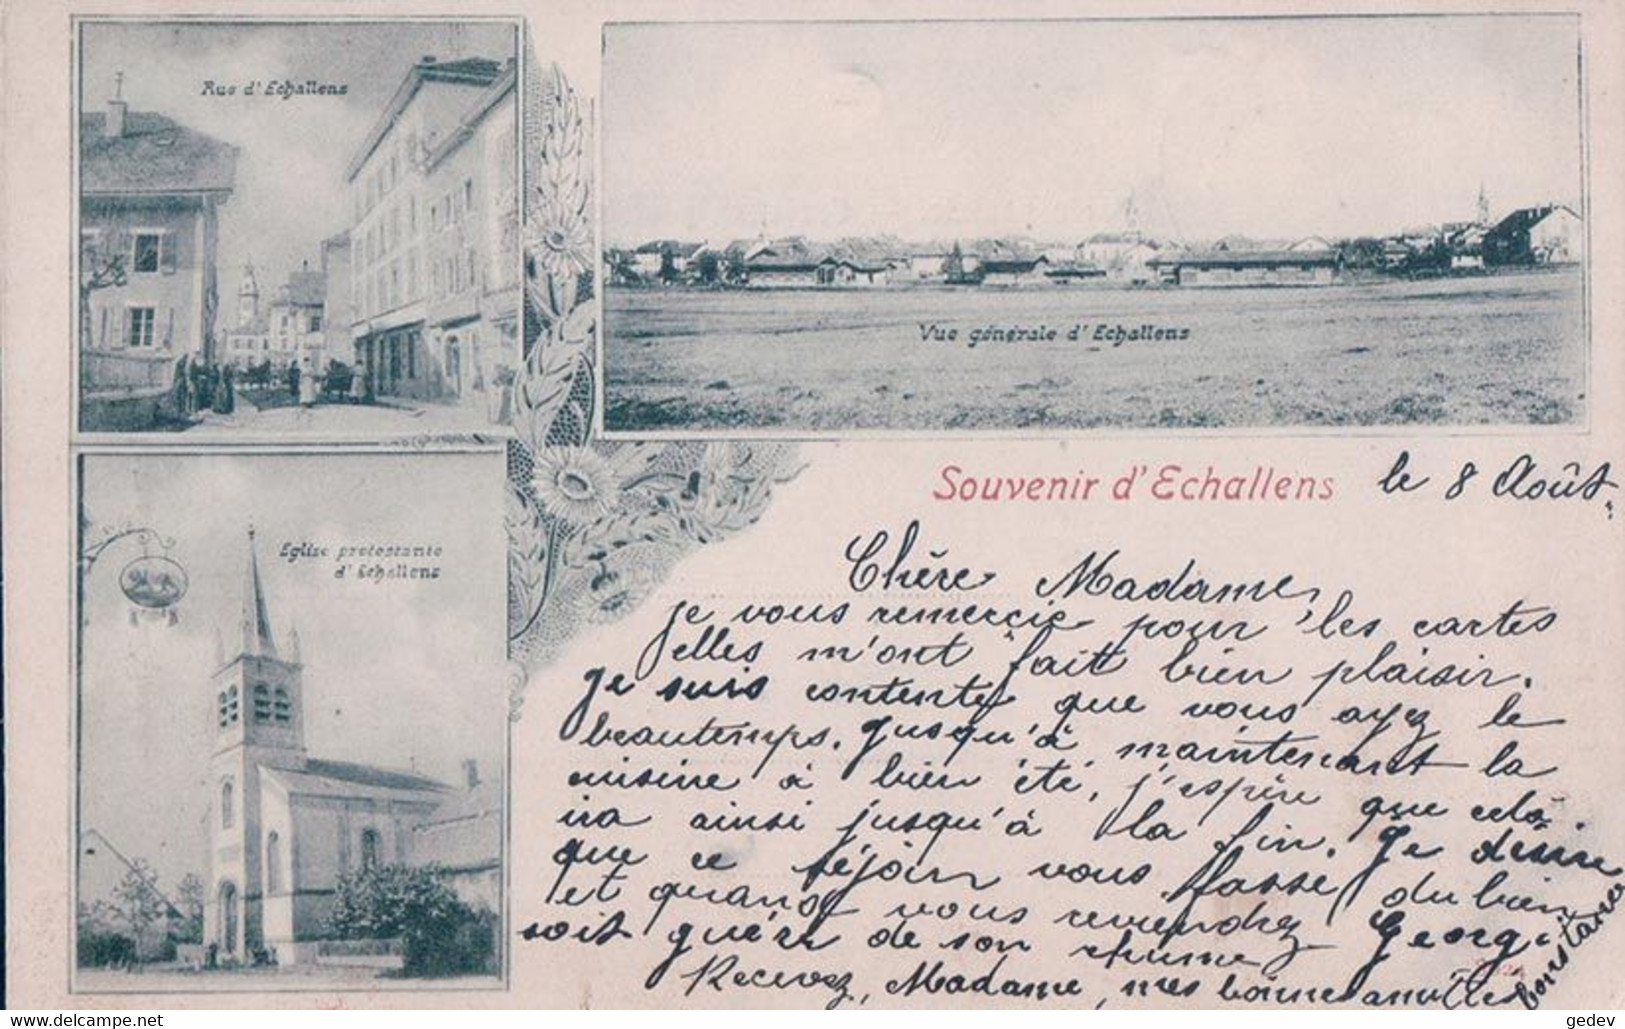 Rue d'Echallens
Vue générale d'Echallens
Eglise protestante
d'Echallens
Souvenir d'Echallens
le 8 Août.
Chère Madame,
je vous remercie pour les cartes
elles m'ont fait bien plaisir.
Je suis contente que vous ayez le
beautemps. Jusqu'à maintenant la
cuisine à bien été, j'espère que celà
ira ainsi jusqu'à la fin. Je désire
que ce séjour vous fasse du bien
et quand vous reviendrez Georg.
soit guéri de son rhume
Recevez, Madame, mes bonnes amitiés
Constance
gedev
https://www.delcampe.net